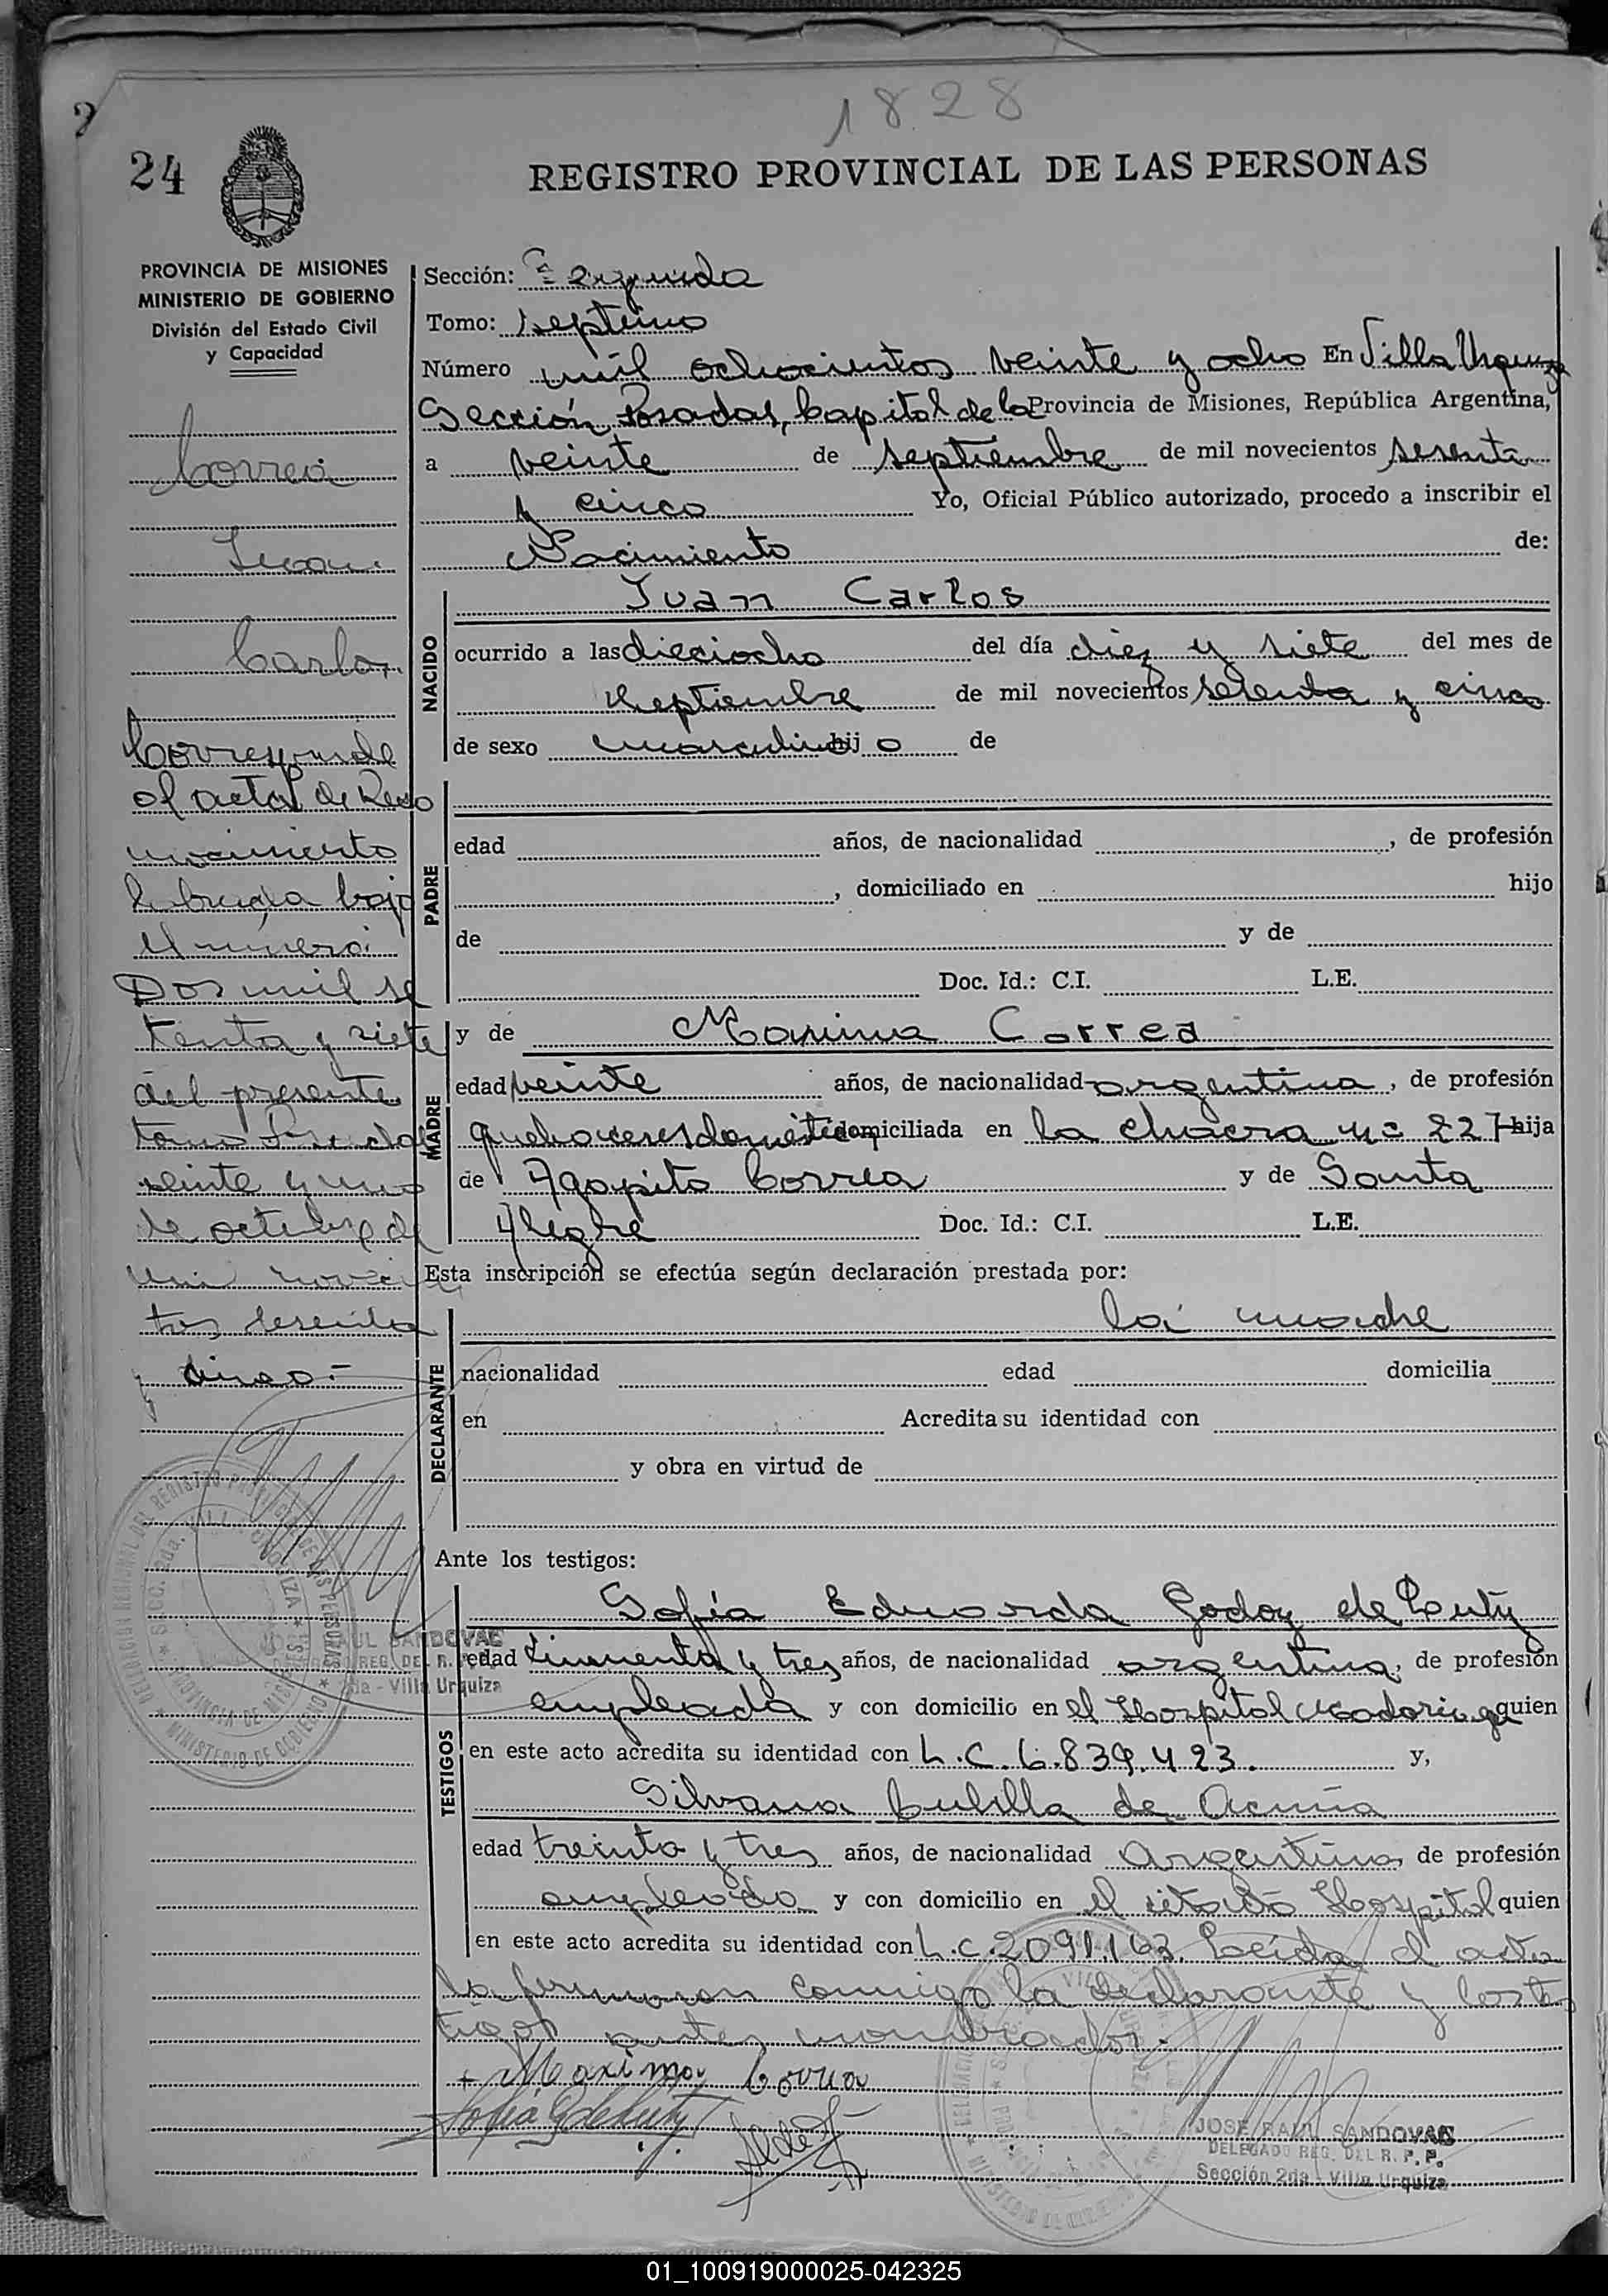 1828
24
REGISTRO PROVINCIAL DE LAS PERSONAS
PROVINCIA DE MISIONES
MINISTERIO DE GOBIERNO
División del Estado Civil
y Capacidad
Sección: Segunda
Tomo: septimo
Número mil ochocientos veinte y ocho En Villa Urquiza
Sección Posadas, Capital de la Provincia de Misiones, República Argentina,
a veinte de septiembre de mil novecientos sesenta
y cinco Yo, Oficial Público autorizado, procedo a inscribir el
Nacimiento de:
NACIDO
Juan Carlos
ocurrido a las dieciocho del día diez y siete del mes de
septiembre de mil novecientos sesenta y cinco
de sexo masculino hijo de
PADRE
edad años, de nacionalidad , de profesión
, domiciliado en hijo
de y de
Doc. Id.: C.I. L.E.
MADRE
y de Maxima Correa
edad veinte años, de nacionalidad argentina, de profesión
quehaceres domésticos domiciliada en la chacra nº 227 hija
de Agapito Correa y de Santa
Alegre Doc. Id.: C.I. L.E.
Esta inscripción se efectúa según declaración prestada por:
DECLARANTE
la madre
nacionalidad edad domicilia
en Acredita su identidad con
y obra en virtud de
Ante los testigos:
TESTIGOS
Sofía Eduarda Godoy de
edad cincuenta y tres años, de nacionalidad argentina, de profesión
empleada y con domicilio en el Hospital Madariaga quien
en este acto acredita su identidad con L.C. 6.839.423. y,
Silvana Cubilla de Acuña
edad treinta y tres años, de nacionalidad Argentina, de profesión
empleada y con domicilio en el citado Hospital quien
en este acto acredita su identidad con L.C. 2091.163. Leida el acta
la firmaron conmigo la declarante y los tes
tigos antes nombrados.-
+ Maxima Correa
JOSE RAUL SANDOVAL
DELEGADO REG. DEL R. P. P.
Sección 2da - Villa Urquiza
Correa
Juan
Carlos
Corresponde
al acta de Reco
nocimiento
labrada bajo
el número
Dos mil se
tenta y siete
del presente
tomo Posadas
veinte y uno
de octubre de
mil novecien
tos sesenta
y cinco.-
RAUL SANDOVAL
REG. DEL R.
2da - Villa Urquiza
01_100919000025-042325